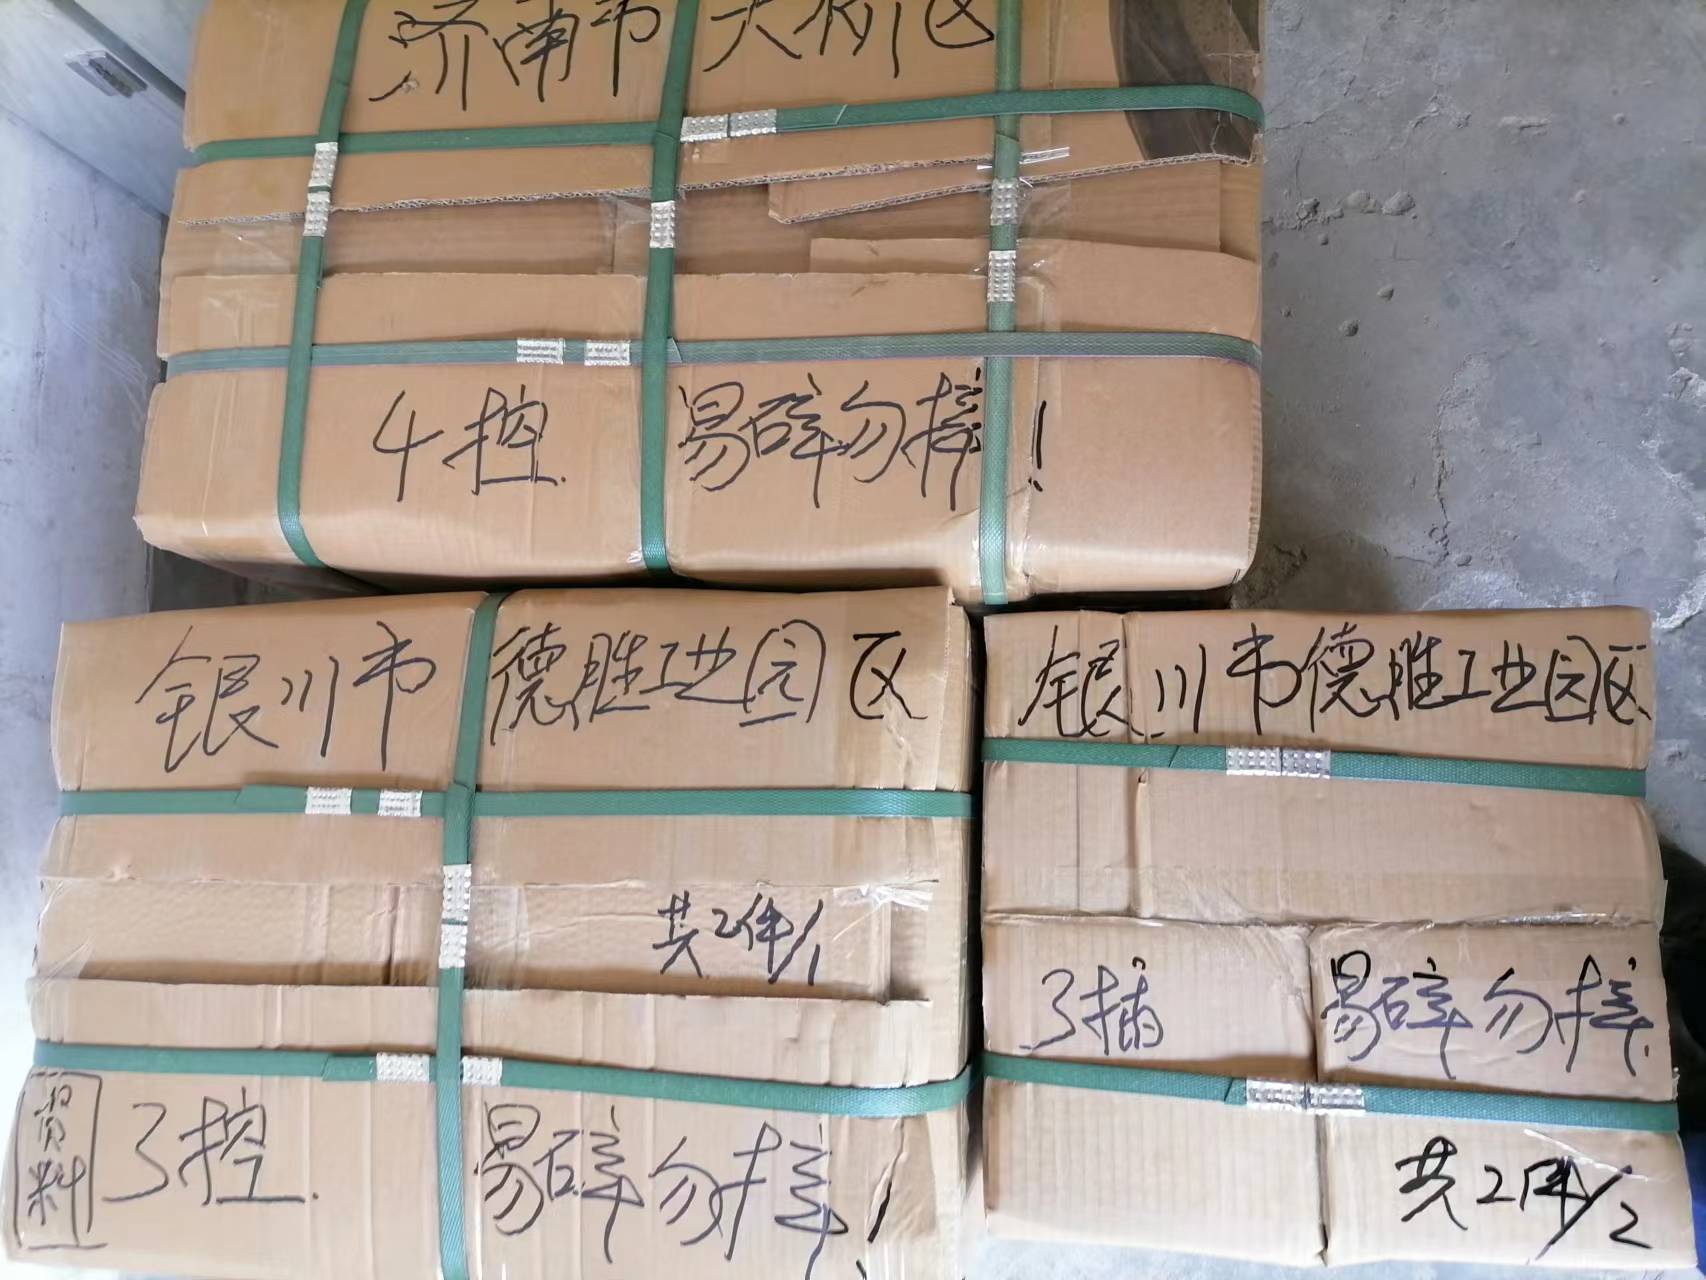 济南市 天桥区
4控 易碎勿摔!
银川市 德胜工业园区
共2件/1
资料
3控 易碎勿摔!
银川市德胜工业园区
3插 易碎勿摔
共2件/2